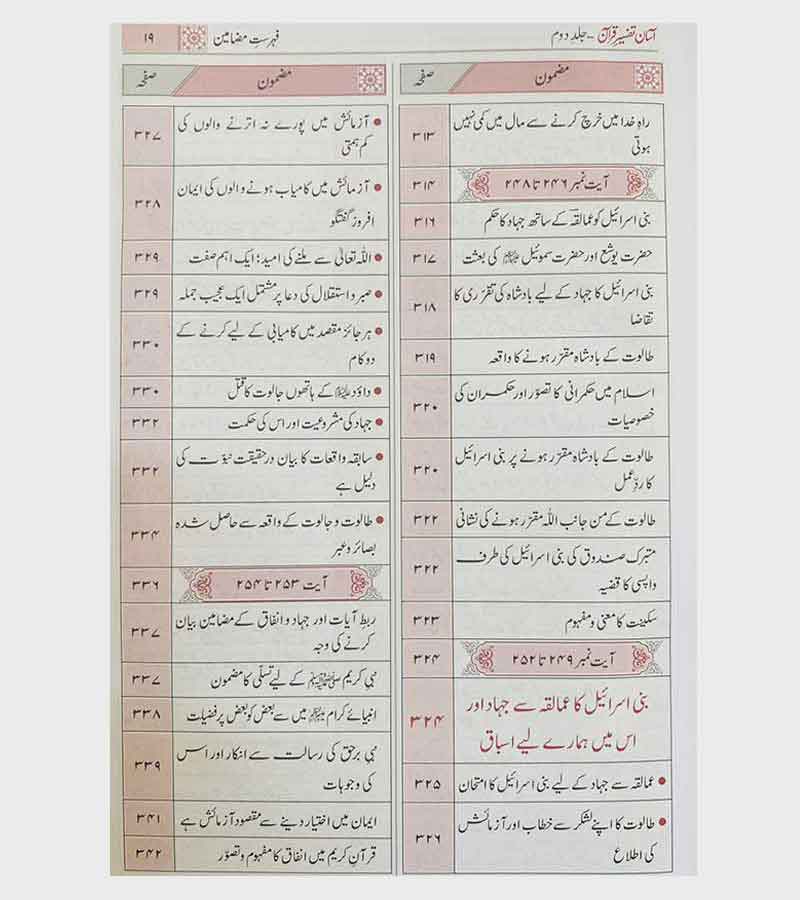 آسان تفسیر قرآن - جلد دوم
فہرستِ مضامین
۱۹
مضمون
صفحہ
راہِ خدا میں خرچ کرنے سے مال میں کمی نہیں
ہوتی
۳۱۳
آیت نمبر ۲۴۶ تا ۲۴۸
۳۱۴
بنی اسرائیل کو عمالقہ کے ساتھ جہاد کا حکم
۳۱۶
حضرت یوشع اور حضرت سموئیل علیہما السلام کی بعثت
۳۱۷
بنی اسرائیل کا جہاد کے لیے بادشاہ کی تقرّری کا
تقاضا
۳۱۸
طالوت کے بادشاہ مقرّر ہونے کا واقعہ
۳۱۹
اسلام میں حکمرانی کا تصوّر اور حکمران کی
خصوصیات
۳۲۰
طالوت کے بادشاہ مقرّر ہونے پر بنی اسرائیل
کا ردِّ عمل
۳۲۰
طالوت کے من جانب اللہ مقرّر ہونے کی نشانی
۳۲۲
متبرک صندوق کی بنی اسرائیل کی طرف
واپسی کا قضیہ
۳۲۲
سکینت کا معنی و مفہوم
۳۲۳
آیت نمبر ۲۴۹ تا ۲۵۲
۳۲۴
بنی اسرائیل کا عمالقہ سے جہاد اور
اس میں ہمارے لیے اسباق
۳۲۴
● عمالقہ سے جہاد کے لیے بنی اسرائیل کا امتحان
۳۲۵
● طالوت کا اپنے لشکر سے خطاب اور آزمائش
کی اطلاع
۳۲۶
مضمون
صفحہ
● آزمائش میں پورے نہ اترنے والوں کی
کم ہمتی
۳۲۷
● آزمائش میں کامیاب ہونے والوں کی ایمان
افروز گفتگو
۳۲۸
● اللہ تعالیٰ سے ملنے کی امید؛ ایک اہم صفت
۳۲۹
● صبر و استقلال کی دعا پر مشتمل ایک عجیب جملہ
۳۲۹
● ہر جائز مقصد میں کامیابی کے لیے کرنے کے
دو کام
۳۳۰
● داؤد علیہ السلام کے ہاتھوں جالوت کا قتل
۳۳۰
● جہاد کی مشروعیت اور اس کی حکمت
۳۳۲
● سابقہ واقعات کا بیان درحقیقت نبوّت کی
دلیل ہے
۳۳۲
● طالوت و جالوت کے واقعہ سے حاصل شدہ
بصائر و عبر
۳۳۴
آیت ۲۵۳ تا ۲۵۴
۳۳۶
ربط آیات اور جہاد و انفاق کے مضامین بیان
کرنے کی وجہ
۳۳۷
نبی کریم صلی اللہ علیہ وسلم کے لیے تسلّی کا مضمون
۳۳۷
انبیائے کرام علیہم السلام میں سے بعض کو بعض پر فضیلت
۳۳۸
نبی برحق کی رسالت سے انکار اور اس
کی وجوہات
۳۳۹
ایمان میں اختیار دینے سے مقصود آزمائش ہے
۳۴۱
قرآنِ کریم میں انفاق کا مفہوم و تصوّر
۳۴۲